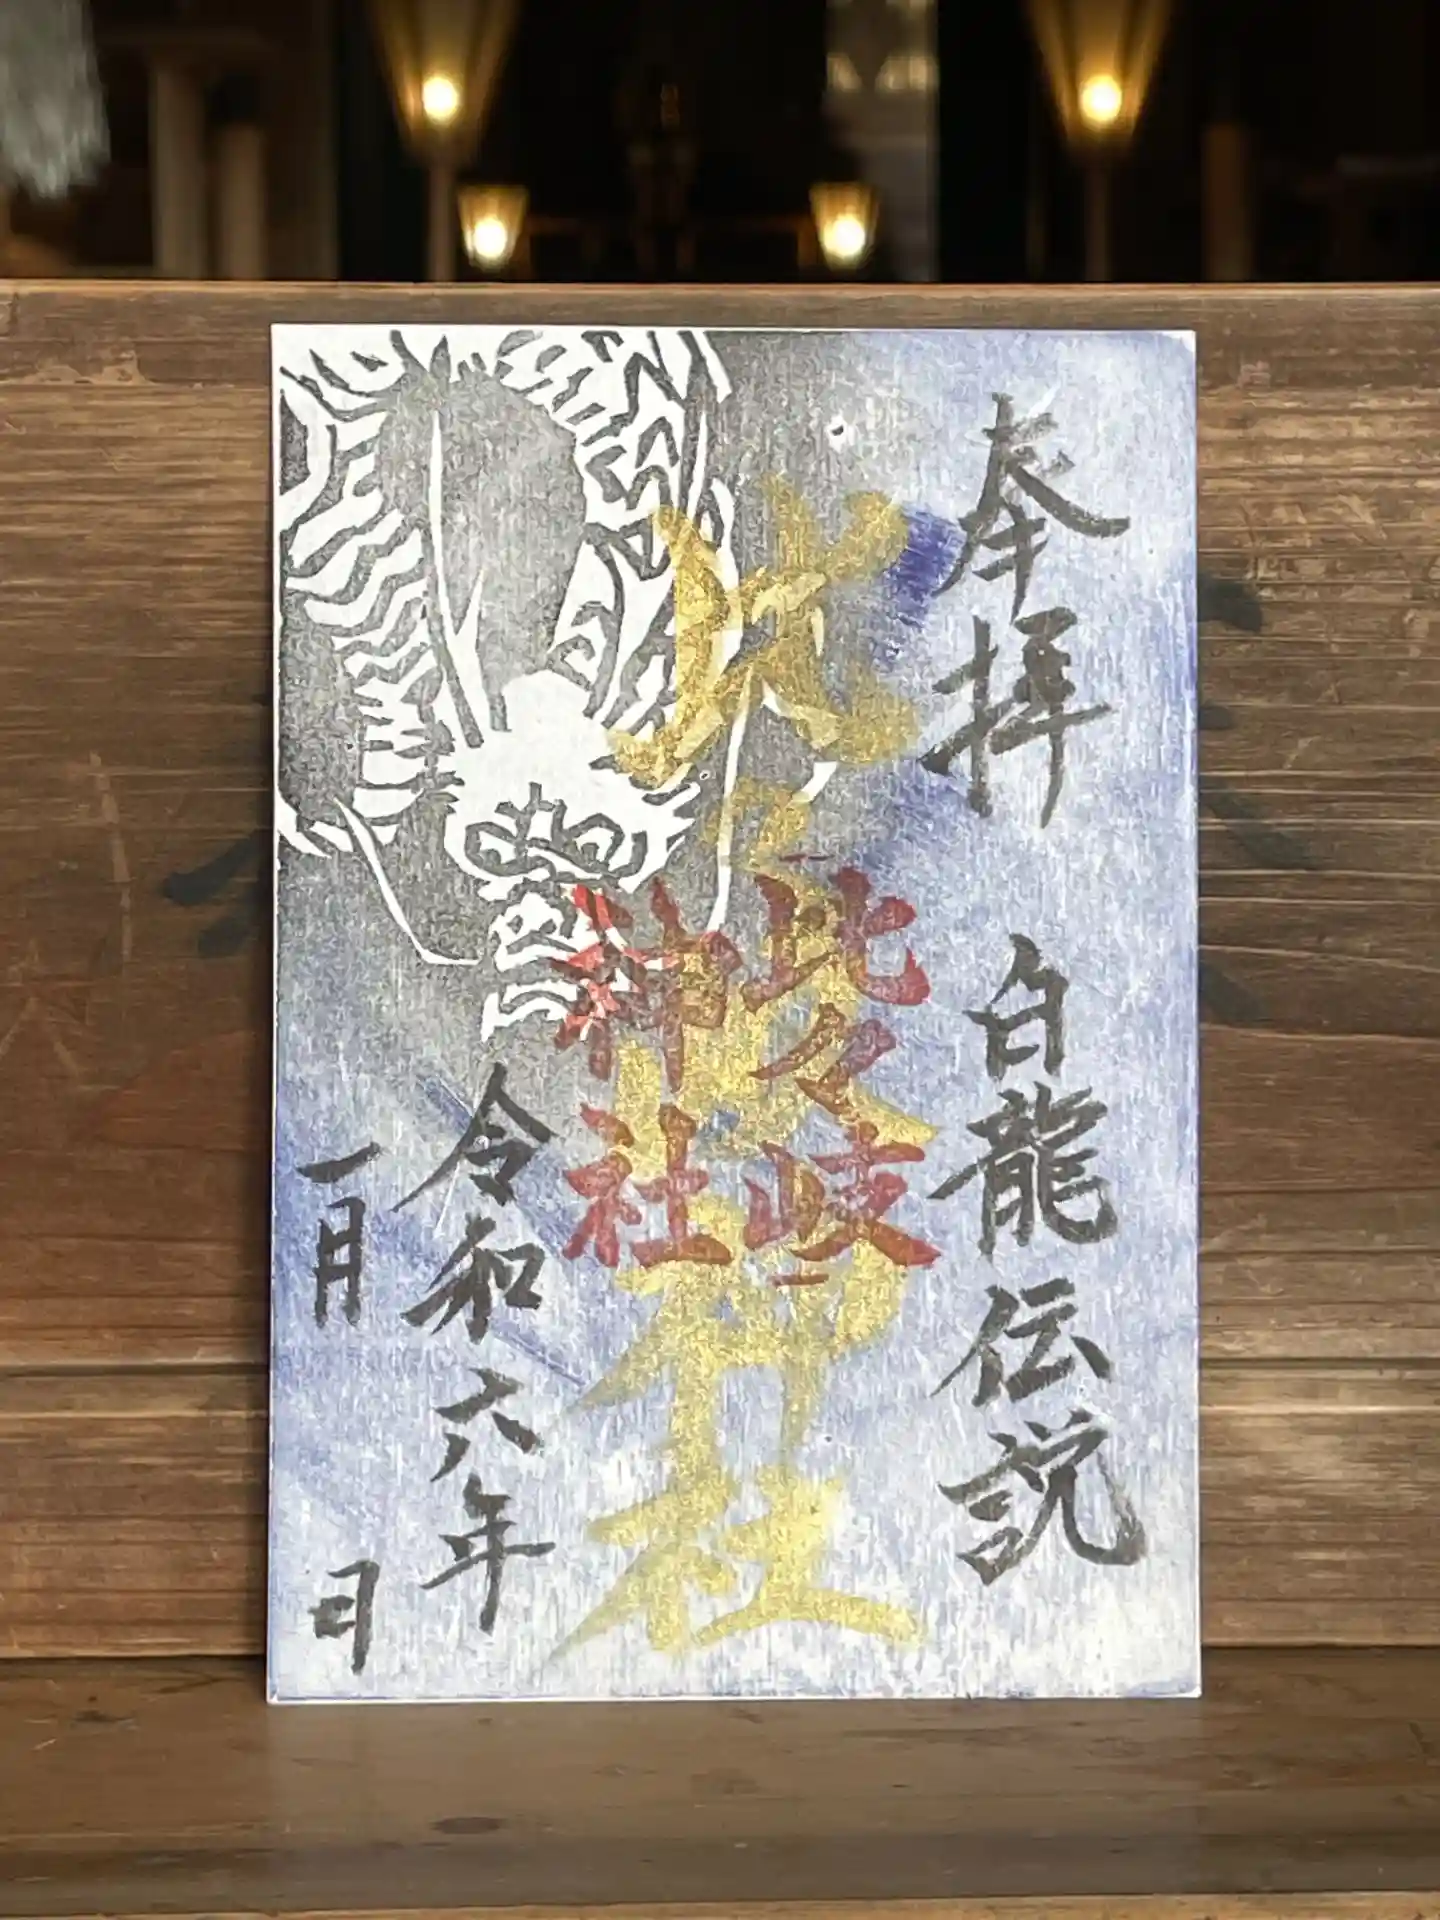 奉拝
白龍伝説
比々岐神社
比々岐
神社
令和六年
一月
日